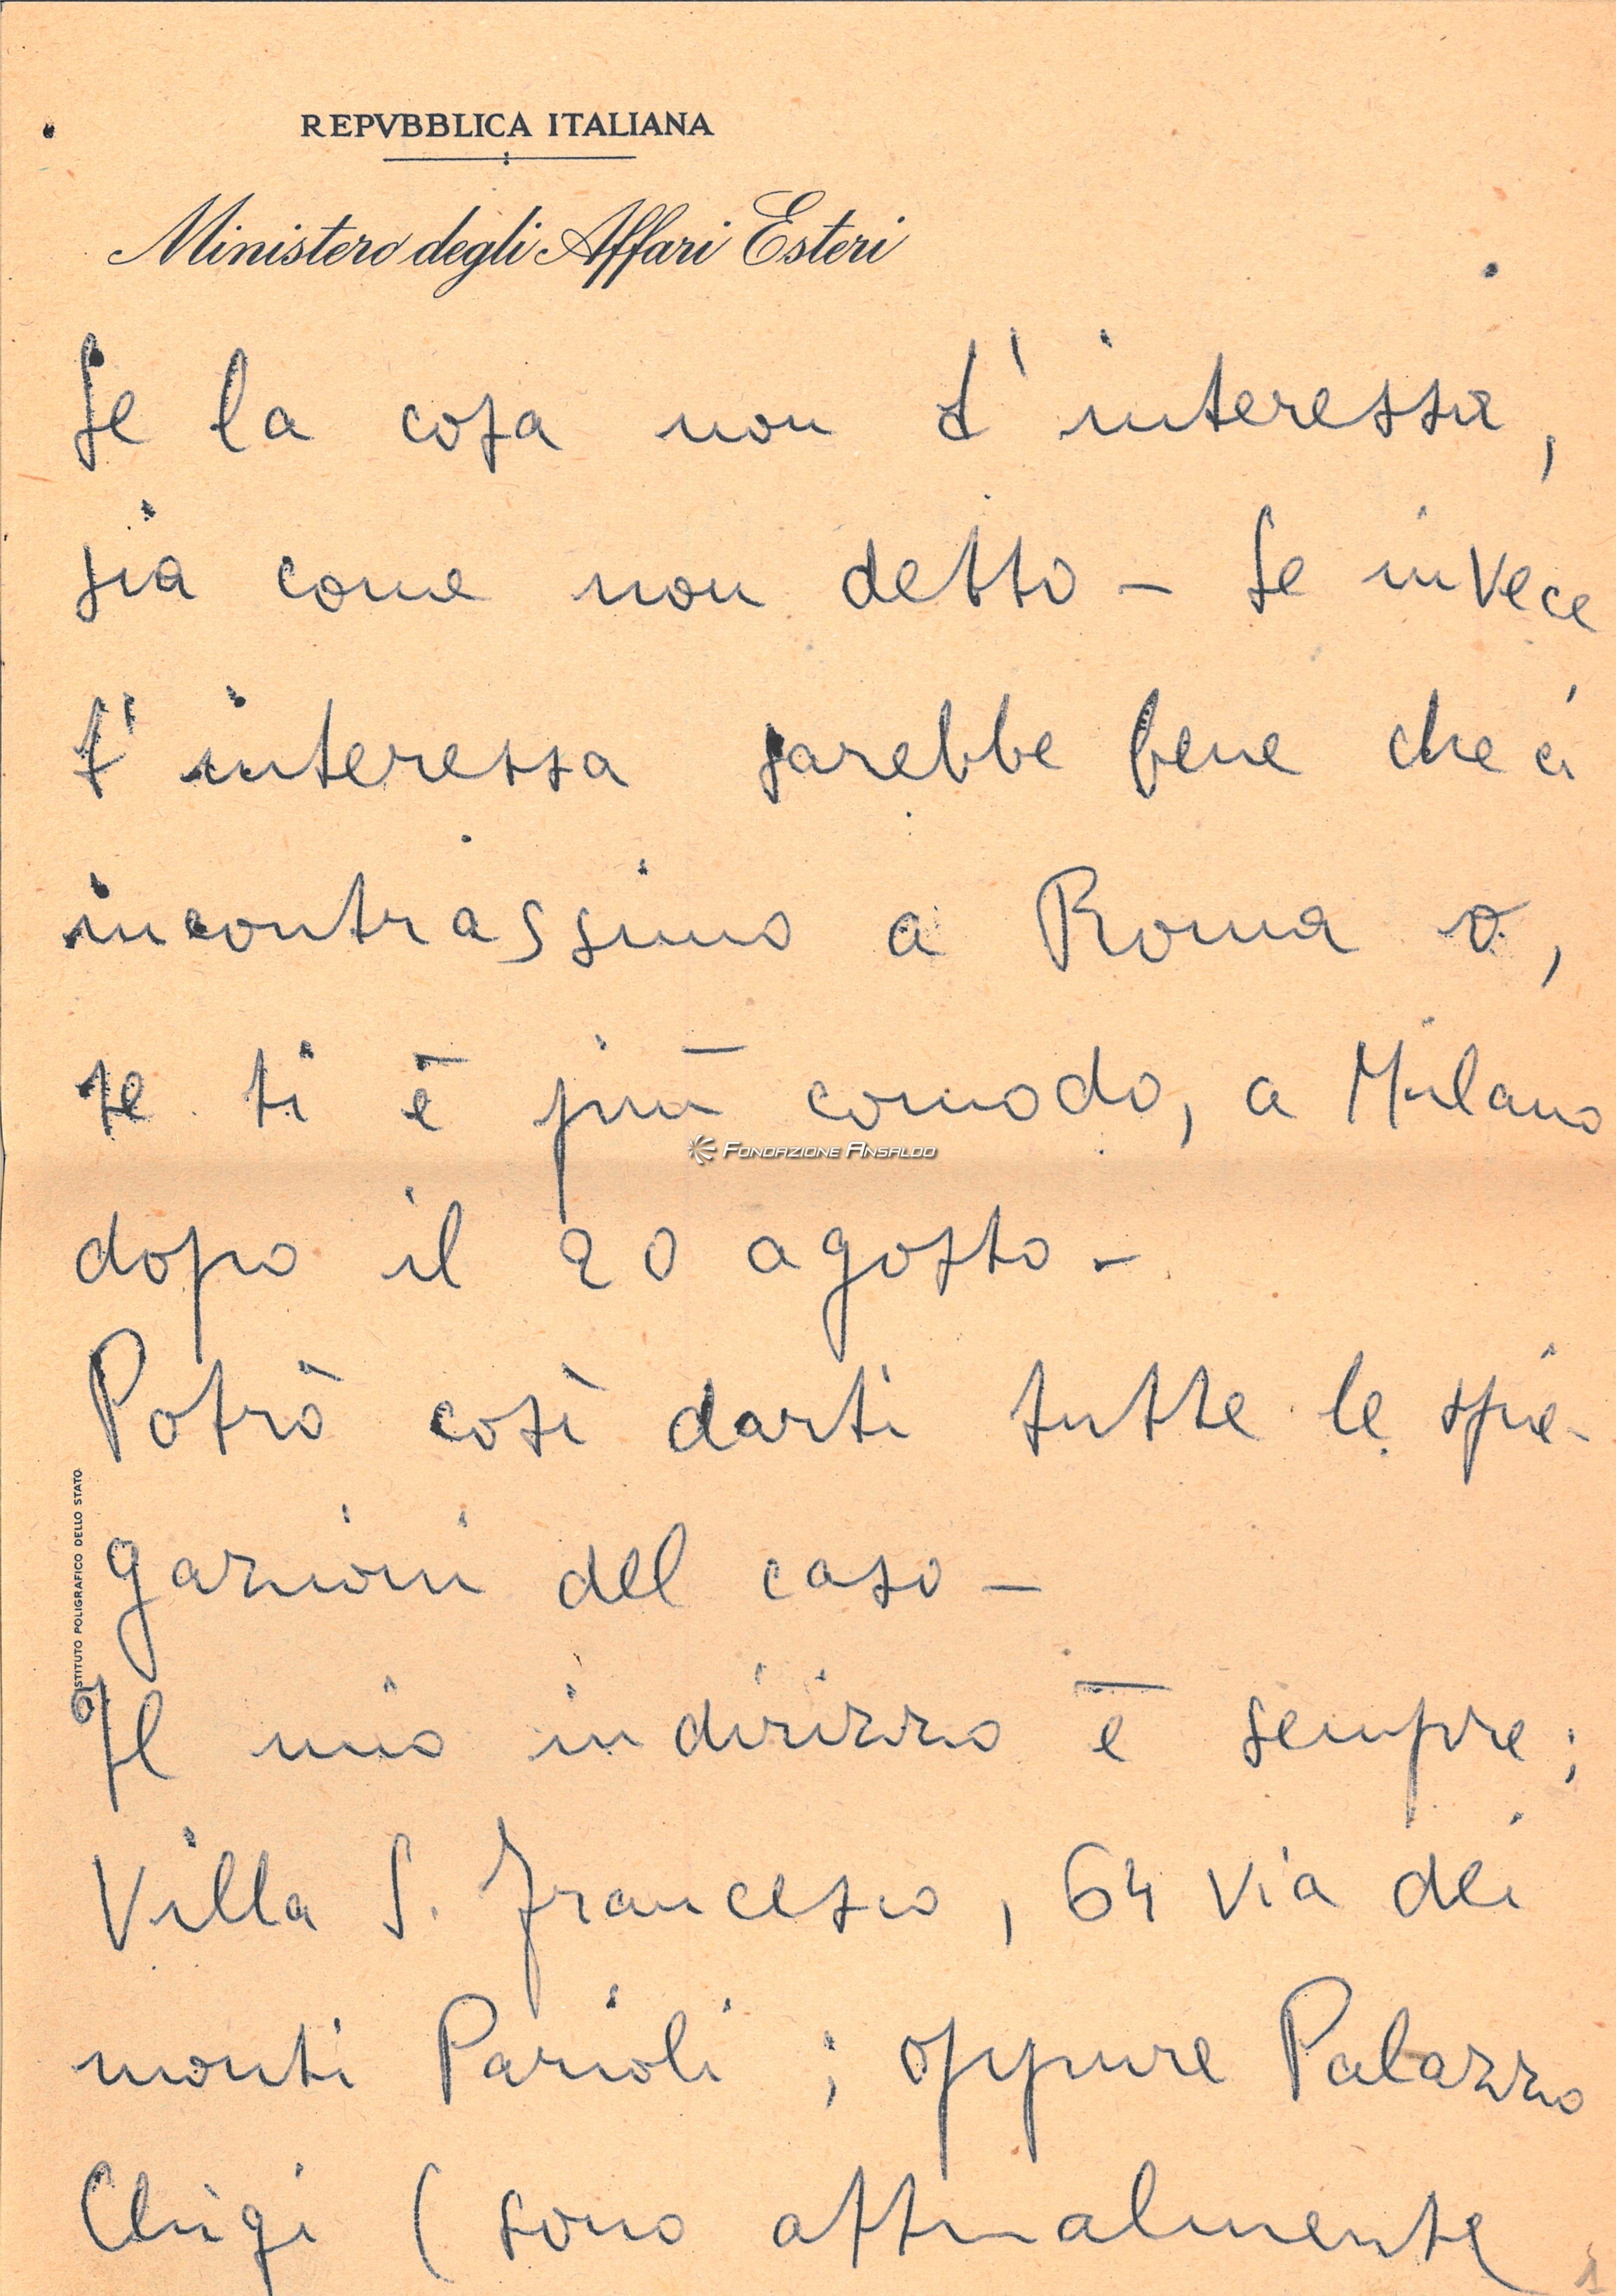 REPVBBLICA ITALIANA
Ministero degli Affari Esteri
Se la cosa non t'interessa,
sia come non detto – Se invece
t'interessa sarebbe bene che ci
incontrassimo a Roma o,
se ti è più comodo, a Milano
FONDAZIONE ANSALDO
dopo il 20 agosto –
Potrò così darti tutte le spie-
gazioni del caso –
ISTITUTO POLIGRAFICO DELLO STATO
Il mio indirizzo è sempre;
Villa S. Francesco, 64 via dei
monti Parioli ; oppure Palazzo
Chigi (sono attualmente
1